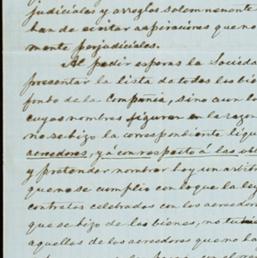 judiciales y arreglos solemnemente
han de evitar aspiraciones que no
mente perjudiciales.
Al pedir esperas la Socieda
presentar la lista de todos los bie
fondo de la Compañia, sino aun lo
cuyos nombres figuran en la razon
no se hizo la correspondiente liqui
acreedores, y á con respecto á las ob
y pretender nombrar hoy un arbitro
que no se cumplio con lo que la ley
contratos celebrados con los acreedor
que se hizo de los bienes, no tu
aquellos de los acreedores que no ha